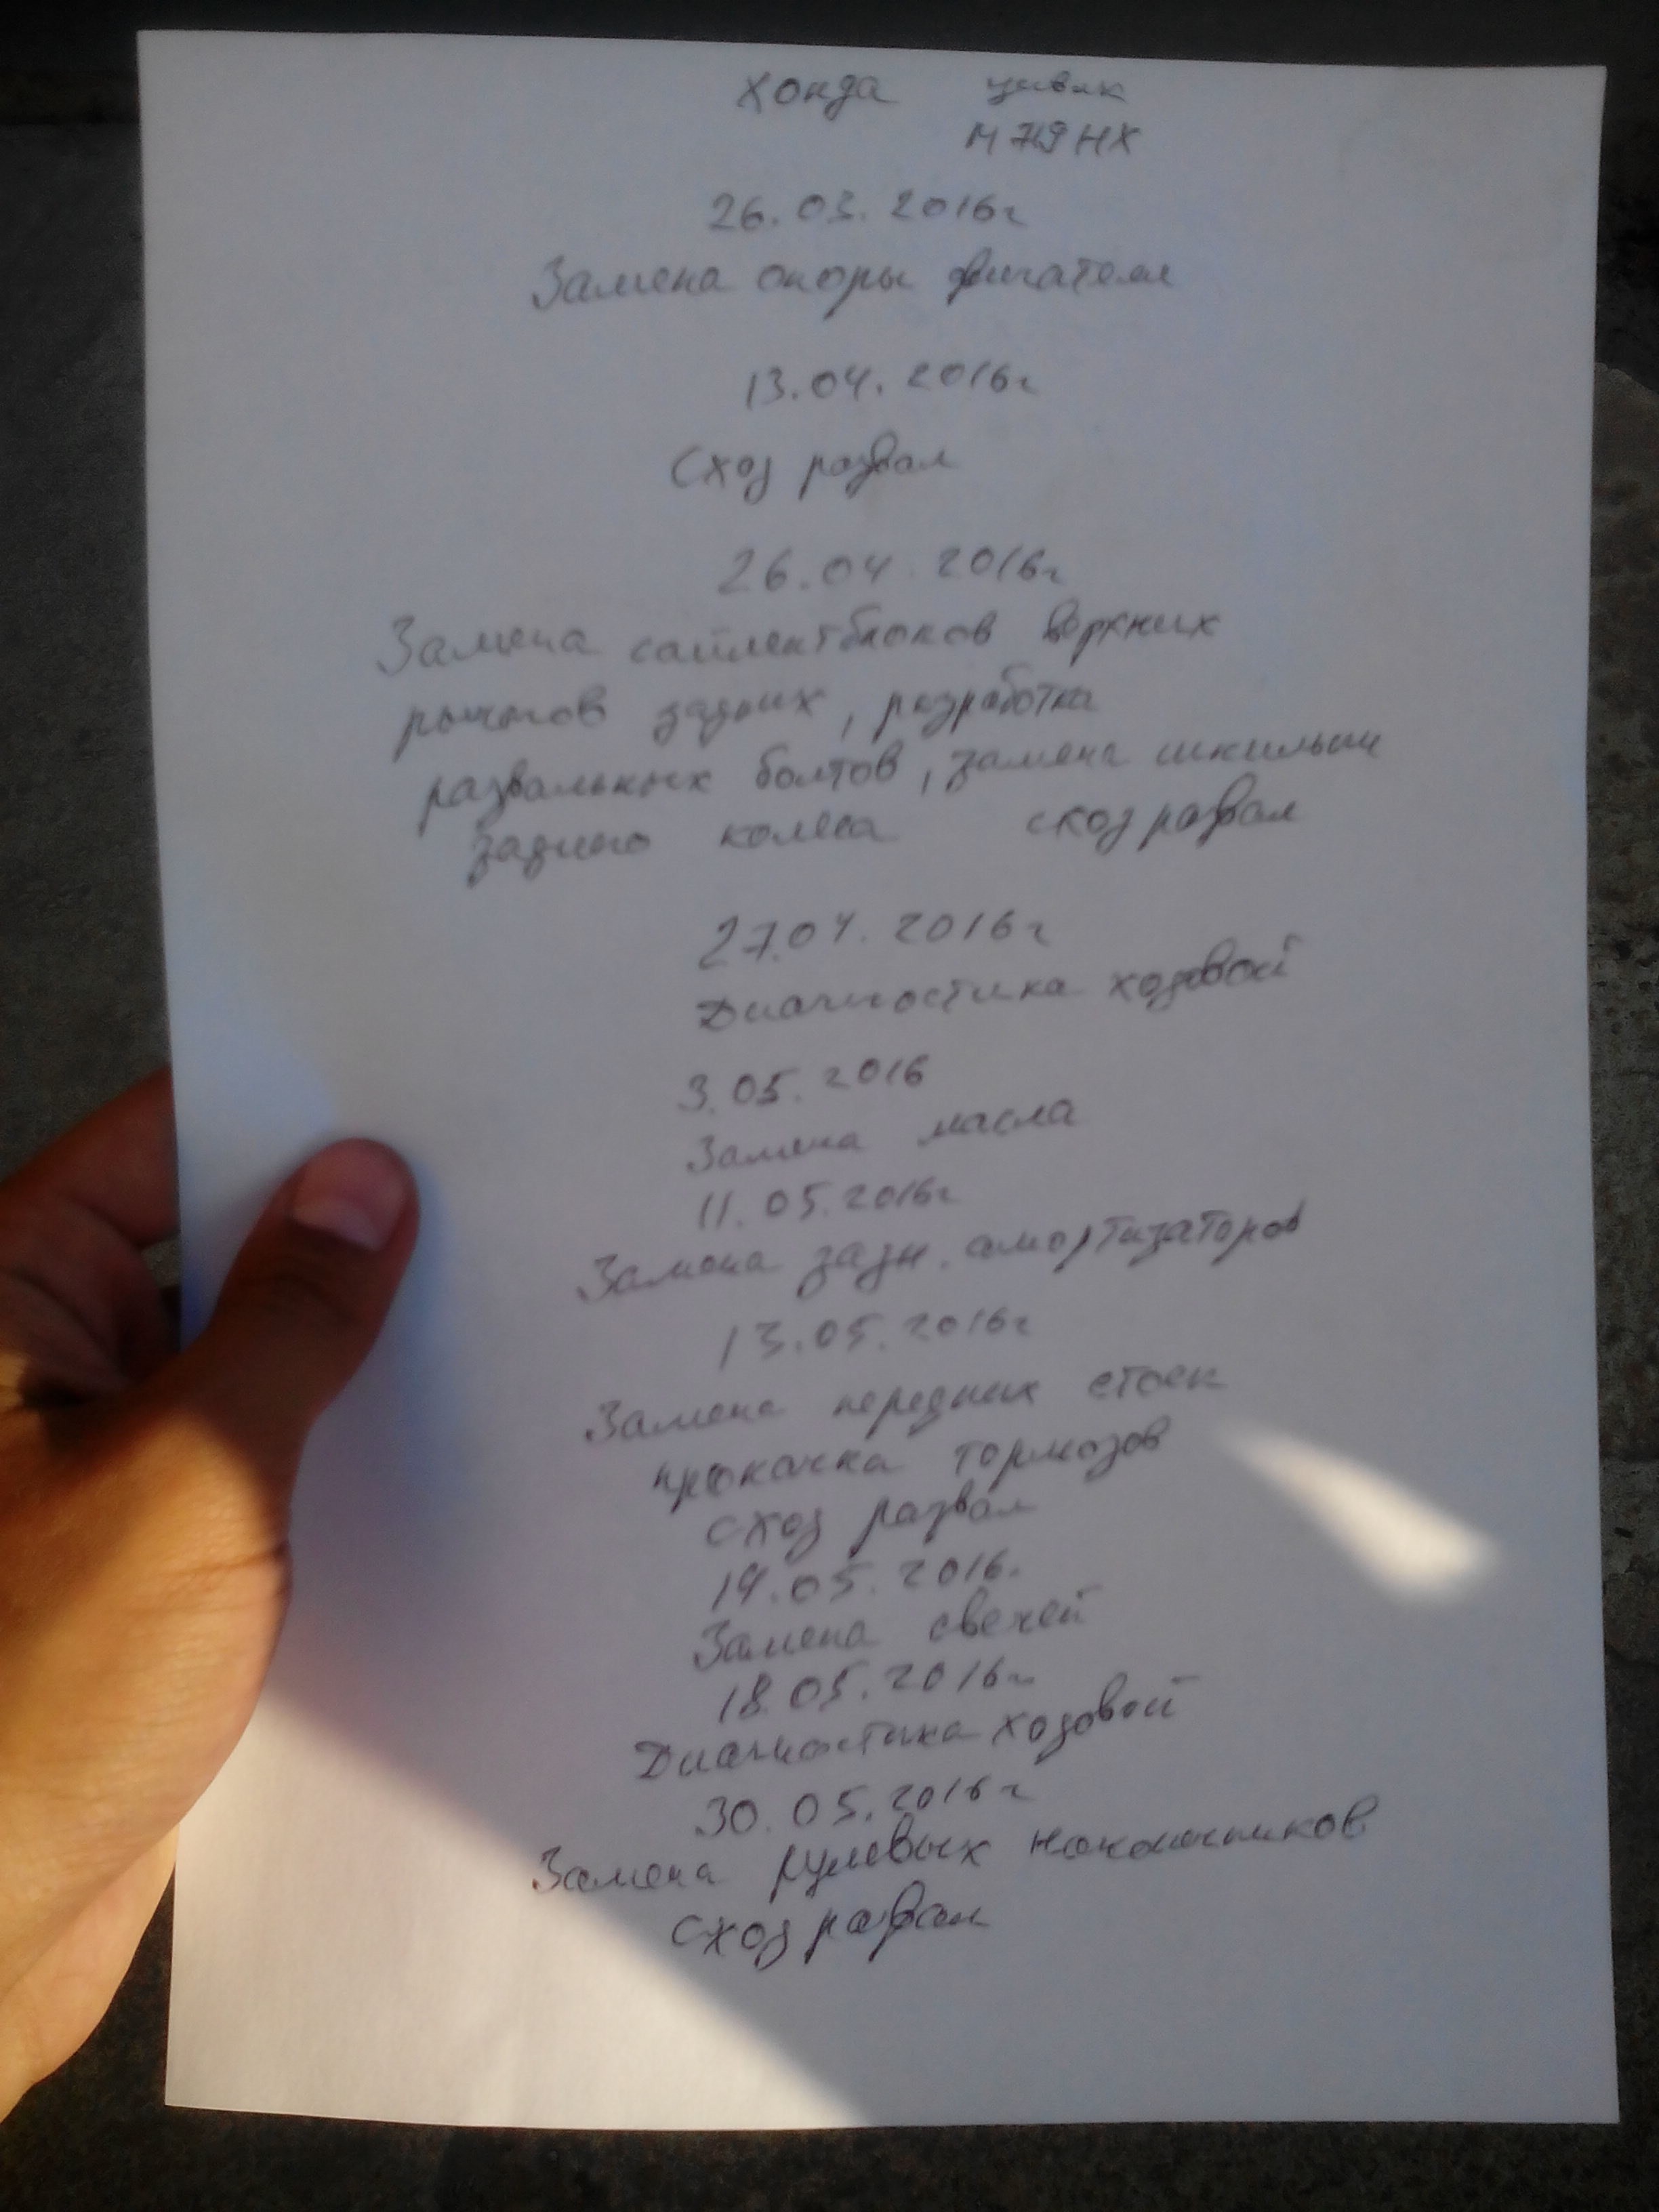 Хонда цивик
М 719 НХ
26.03.2016г
Замена опоры двигателя
13.04.2016г
Сход развал
26.04.2016г
Замена сайлентблоков верхних
рычагов задних, разработка
развальных болтов, замена шпильки
заднего колеса сход развал
27.04.2016г
Диагностика ходовой
3.05.2016
Замена масла
11.05.2016г
Замена задн. амортизаторов
13.05.2016г
Замена передних стоек
прокачка тормозов
сход развал
14.05.2016.
Замена свечей
18.05.2016г
Диагностика ходовой
30.05.2016г
Замена рулевых наконечников
сход развал